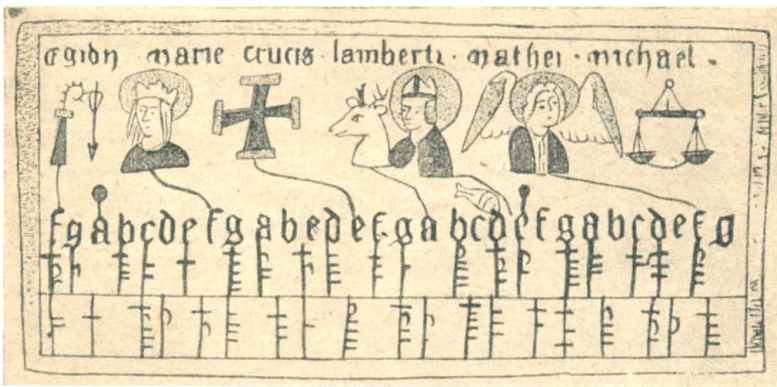 egidij · marie · crucis · lamberti · mathei · michael ·
f g a b c d e f g a b c d e f g a b c d e f g a b c d e f g